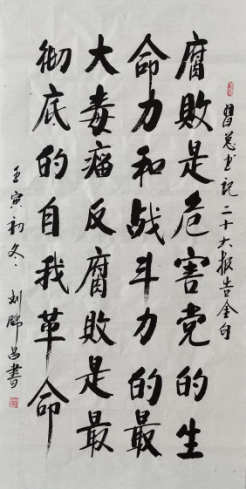 習总书记二十大报告金句
腐败是危害党的生
命力和战斗力的最
大毒瘤反腐败是最
彻底的自我革命
壬寅初冬刘
昌書